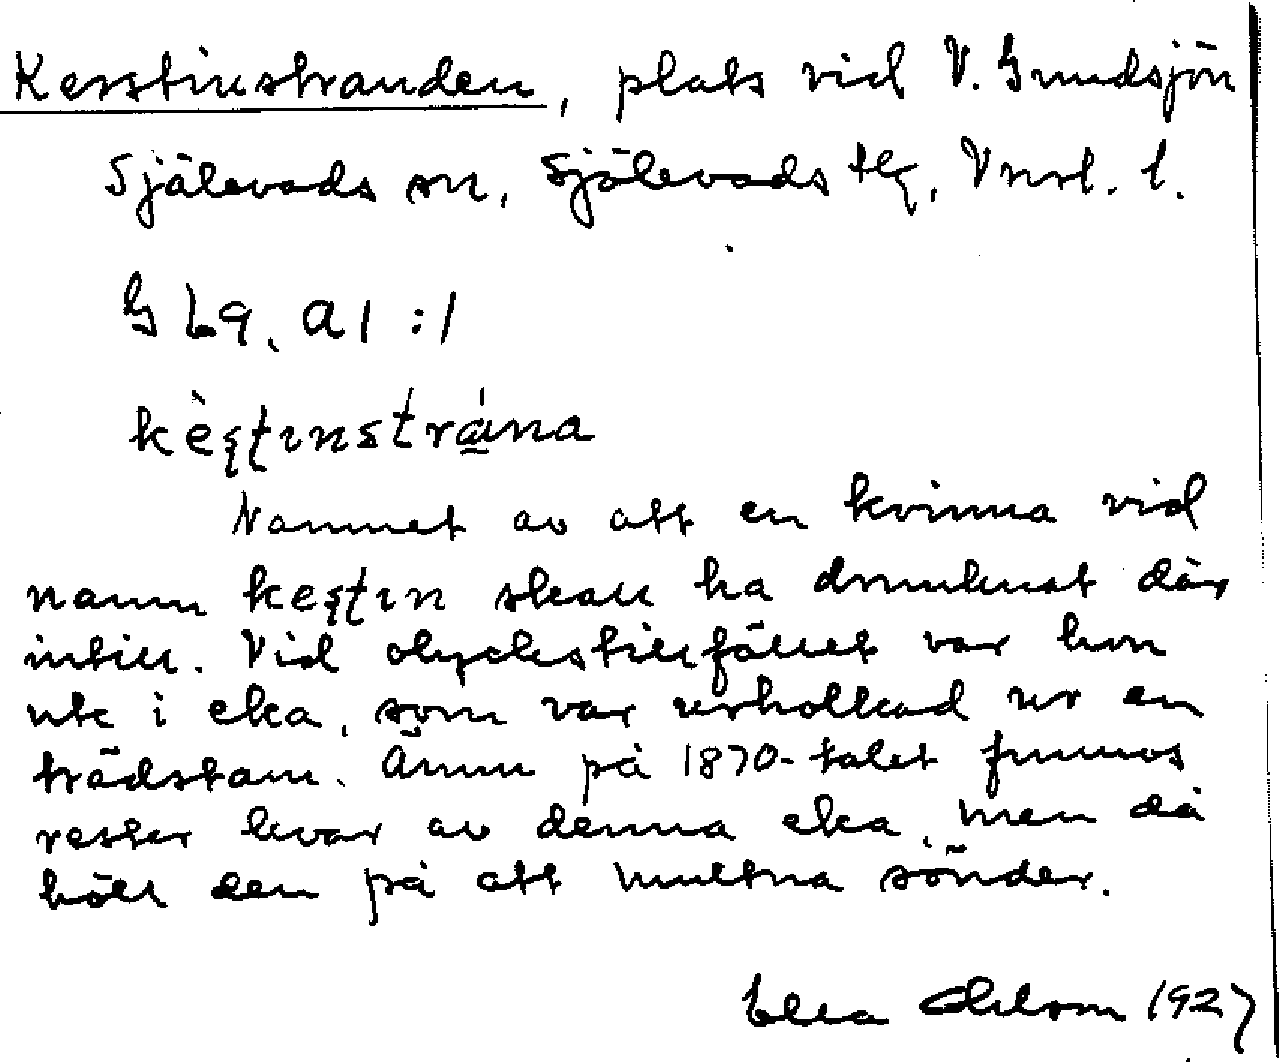 Kerstinstranden, plats vid V. Gundsjön
Själevads sn, Själevads tlg, Vnrl. l.
G L9, a1 :1
kèʂʈɪnstrána
Namnet av att en kvinna vid
namn keʂʈɪn skall ha drunknat där
intill. Vid olyckstillfället var hon
ute i eka, som var urholkad ur en
trädstam. Ännu på 1870-talet funnos
rester kvar av denna eka, men då
höll den på att multna sönder.
Ella Ohlson 1927